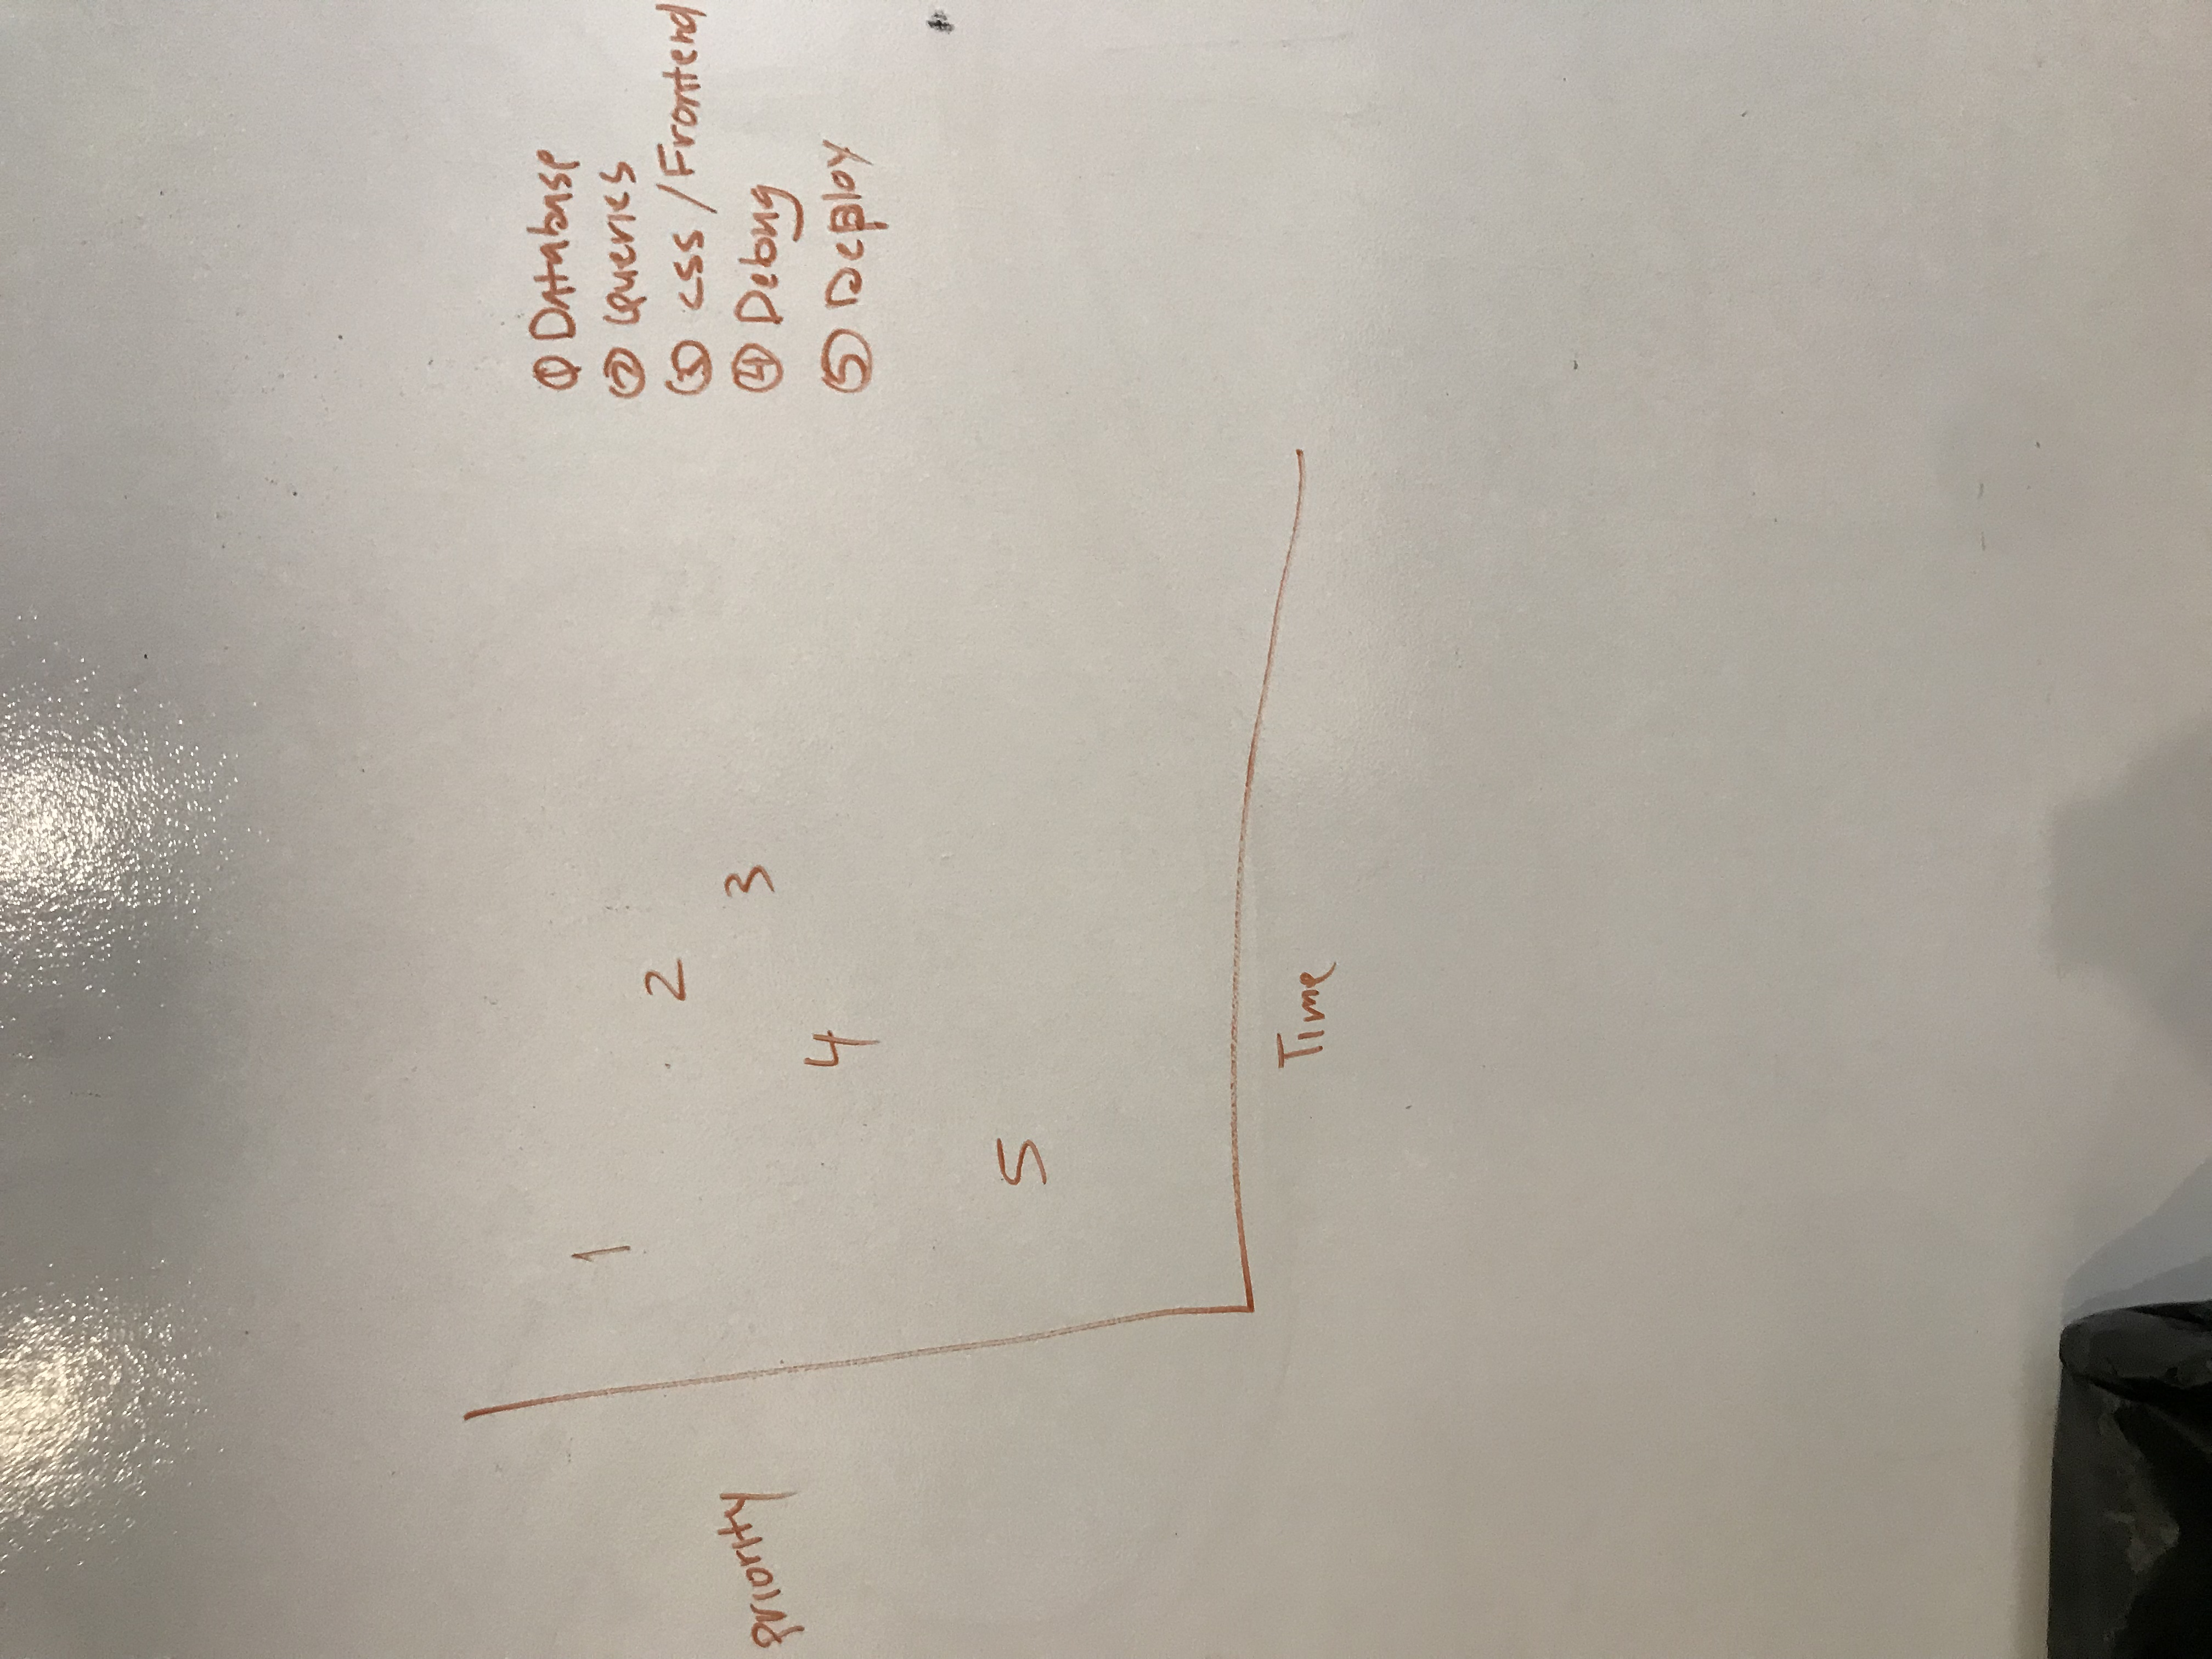 1
2
3
4
5
Priority
Time
① Database
② Queries
③ CSS / Frontend
④ Debug
⑤ Deploy